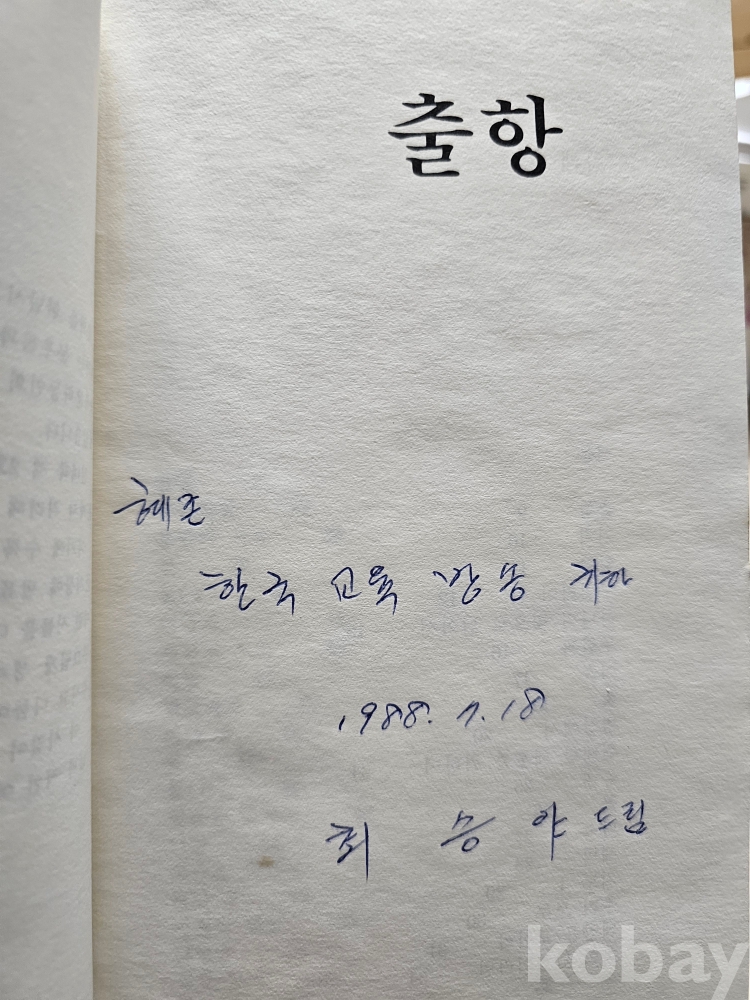 출항
혜존
한국 교육 방송 귀하
1988. 7. 18
최 승 야 드림
kobay